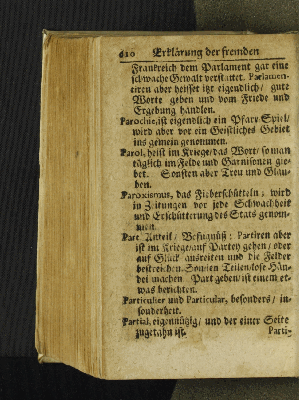 610 Erklärung der fremden
Franckreich dem Parlament gar eine
schwache Gewalt verstattet. Parlamen-
tiren aber heisset itzt eigendlich/ gute
Worte geben und vom Friede und
Ergebung handlen.
Parochie, ist eigendlich ein Pfarr Spiel/
wird aber vor ein Geistliches Gebiet
ins gemein genommen.
Parol, heist im Kriege/das Wort/ so man
täglich im Felde und Garnisonen gie-
bet. Sonsten aber Treu und Glau-
ben.
Paroxismus, das Fieberschütteln, wird
in Zeitungen vor jede Schwachheit
und Erschütterung des Stats genom-
men.
Part Anteil/ Befugnüß: Partiren aber
ist im Kriege/auf Partey gehen/ oder
auf Glück ausreiten und die Felder
bestreichen. Sonsten Teilen/lose Hän-
del machen Part geben/ ist einem et-
was berichten.
Particulier und Particular, besonders/ in-
sonderheit.
Partial, eigennützig/ und der einer Seite
zugetahn ist.
Parti-